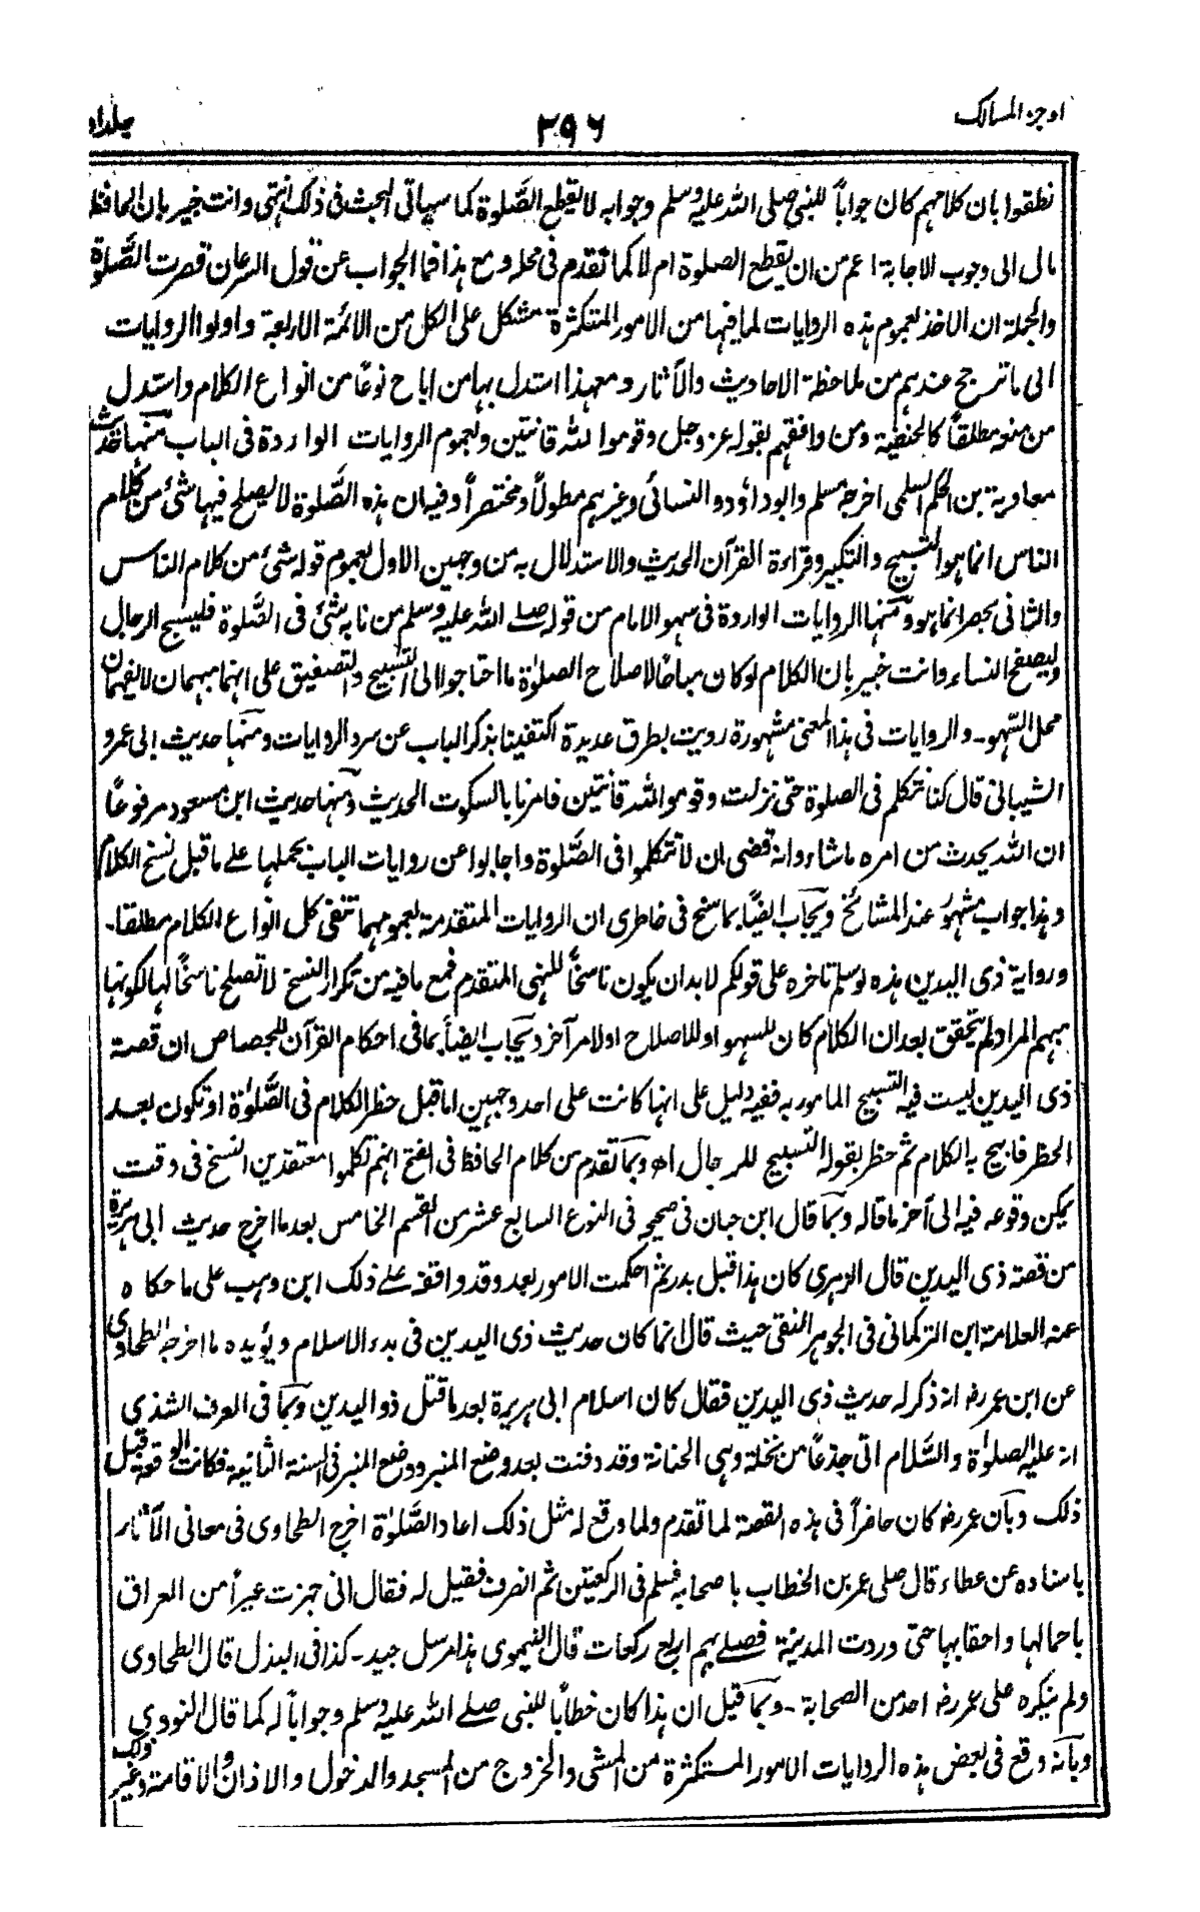 اوجز المسالک
۳۹۶
جلد اول
نطقوا بان کلامہم کان جواباً للنبی صلی اللہ علیہ وسلم وجوابہ لا یقطع الصَّلوٰۃ کما سیأتی البحث فی ذلک انتہی وانت خبیر بان الحافظ
مال الی وجوب الاجابۃ اعم من ان یقطع الصلوۃ ام لا کما تقدم فی محلہ ومع ہذا فما الجواب عن قول السرعان قصرت الصَّلوٰۃ
والجملۃ ان الاخذ بعموم ہذہ الروایات لما فیہا من الامور المتکثرۃ مشکل علی الکل من الائمۃ الاربعۃ واولوا الروایات
الی ما ترجح عندہم من ملاحظۃ الاحادیث والآثار ومعہذا استدل بہا من اباح نوعًا من انواع الکلام واستدل
من منعہ مطلقاً کالحنفیۃ ومن وافقہم بقولہ عز وجل وقوموا للہ قانتین ولعموم الروایات الواردۃ فی الباب منہا حدیث
معاویۃ بن الحکم السلمی اخرجہ مسلم وابو داؤد والنسائی وغیرہم مطولاً ومختصراً وفیہ ان ہذہ الصَّلوۃ لا یصلح فیہا شئ من کلام
الناس انما ہو التسبیح والتکبیر وقراءۃ القرآن الحدیث والاستدلال بہ من وجہین الاول بعموم قولہ شئ من کلام الناس
والثانی بحصر انما ہو ومنہا الروایات الواردۃ فی سہو الامام من قولہ صلے اللہ علیہ وسلم من نابہ شئ فی الصَّلوۃ فلیسبح الرجال
ولیصفح النساء وانت خبیر بان الکلام لو کان مباحًا لاصلاح الصلوٰۃ ما احتاجوا الی التسبیح والتصفیق علی انہما مبہمان لا یفہمان
محل السَّہو۔ والروایات فی ہذا المعنی مشہورۃ رویت بطرق عدیدۃ اکتفینا بذکر الباب عن سرد الروایات ومنہا حدیث ابی عمرو
الشیبانی قال کنا نتکلم فی الصلوۃ حتی نزلت وقوموا للہ قانتین فامرنا بالسکوت الحدیث ومنہا حدیث ابن مسعود مرفوعاً
ان اللہ یحدث من امرہ ما شاء وانہ قضی ان لا تتکلموا فی الصَّلوٰۃ واجابوا عن روایات الباب بحملہا علے ما قبل نسخ الکلام
وہذا جواب مشہور عند المشائخ ویجاب ایضًا بما سنح فی خاطری ان الروایات المتقدمۃ بعمومہا تنفی کل انواع الکلام مطلقا۔
وروایۃ ذی الیدین ہذہ لو سلم تاخرہ علی قولکم لا بد ان یکون ناسخاً للنہی المتقدم فمع ما فیہ من تکرار النسخ لا تصلح ناسخاً لہا لکونہا
مبہم المراد لم یتحقق بعد ان الکلام کان للسہو او للاصلاح او لامر آخر ویجاب ایضاً بما فی احکام القرآن للجصاص ان قصۃ
ذی الیدین لیست فیہ التسبیح المامور بہ ففیہ دلیل علی انہا کانت علی احد وجہین اما قبل حظر الکلام فی الصَّلوٰۃ او تکون بعد
الحظر فابیح بہ الکلام ثم حظر بقولہ التسبیح للرجال اھ وبما تقدم من کلام الحافظ فی الفتح انہم تکلموا معتقدین النسخ فی وقت
یمکن وقوعہ فیہ الی آخر ما قالہ وبما قال ابن حبان فی صحیحہ فی النوع السابع عشر من القسم الخامس بعد ما اخرج حدیث ابی ہریرۃ
من قصۃ ذی الیدین قال الزہری کان ہذا قبل بدر ثم احکمت الامور بعد وقد وافقہ علے ذلک ابن وہب علی ما حکاہ
عنہ العلامۃ ابن الترکمانی فی الجوہر النقی حیث قال انما کان حدیث ذی الیدین فی بدء الاسلام ویؤیدہ ما اخرجہ الطحاوی
عن ابن عمر رضہ انہ ذکر لہ حدیث ذی الیدین فقال کان اسلام ابی ہریرۃ بعد ما قتل ذو الیدین وبما فی العرف الشذی
انہ علیہ الصلوٰۃ والسَّلام اتی جذعاً من نخلۃ وہی الحنانۃ وقد دفنت بعد وضع المنبر ووضع المنبر فی السنۃ الثانیۃ فکانت الوقعۃ قبل
ذلک وبان عمر رضہ کان حاضراً فی ہذہ القصۃ لما تقدم ولما وقع لہ مثل ذلک اعاد الصَّلوٰۃ اخرج الطحاوی فی معانی الآثار
باسنادہ عن عطاء قال صلی عمر بن الخطاب باصحابہ فسلم فی الرکعتین ثم انصرف فقیل لہ فقال انی جہزت عیراً من العراق
باحمالہا واحقابہا حتی وردت المدینۃ فصلے بہم اربع رکعات قال النیموی ہذا مرسل جید۔ کذا فی البذل قال الطحاوی
ولم ینکرہ علی عمر رضہ احد من الصحابۃ۔ وبما قیل ان ہذا کان خطاباً للنبی صلے اللہ علیہ وسلم وجواباً لہ کما قال النووی
وبانہ وقع فی بعض ہذہ الروایات الامور المستکثرۃ من المشی والخروج من المسجد والدخول والاذان والاقامۃ وغیر ذلک